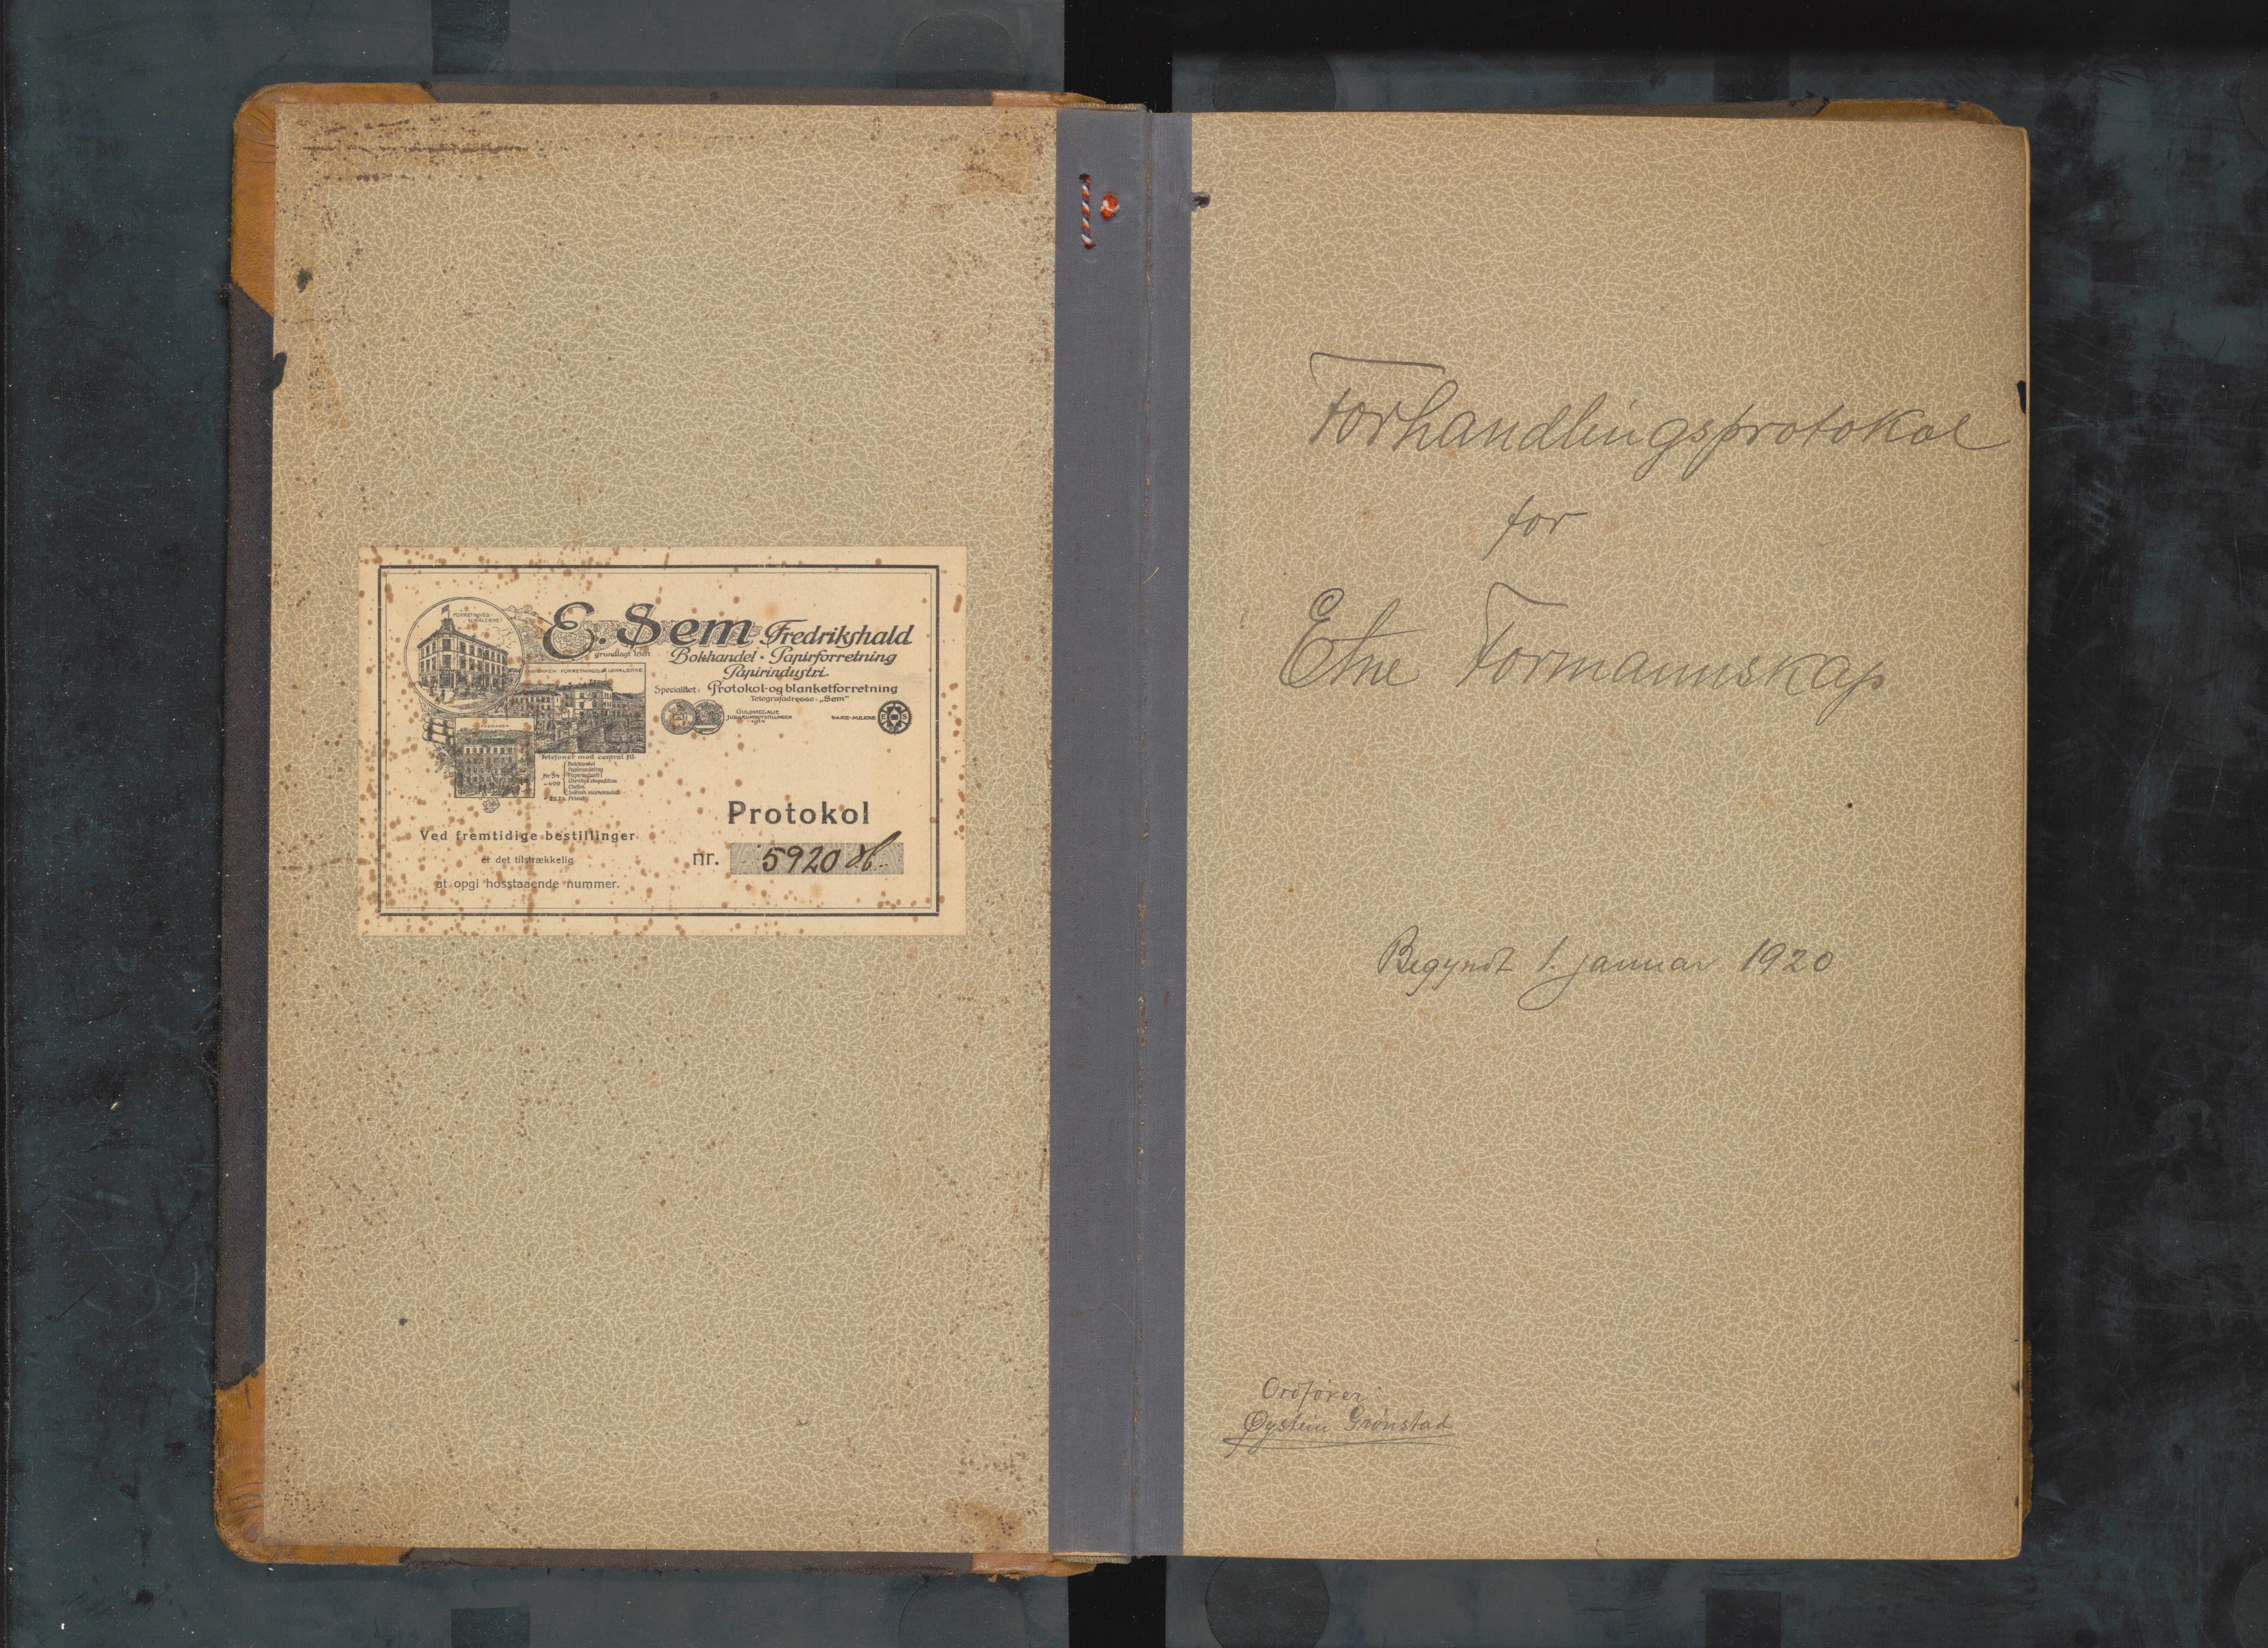 FORRETNINGS-
LOKALERNE
E. Sem Fredrikshald
grundlagt
Bokhandel · Papirforretning
Papirindustri
FORRETNINGSLOKALERNE
Specialitet: Protokol- og blanketforretning
Telegrafadresse: „Sem"
GULDMEDALJE
JUBILÆUMSUTSTILLINGEN
1914
VARE-MERKE
E S
Telefoner med central til:
Bokhandel
Papirindustri
Privat
Protokol
Ved fremtidige bestillinger
er det tilstrækkelig
at opgi hosstaaende nummer.
nr. 5920
Forhandlingsprotokol
for
Etne Formannskap
Begyndt 1. januar 1920
Ordfører:
Øystein Grønstad